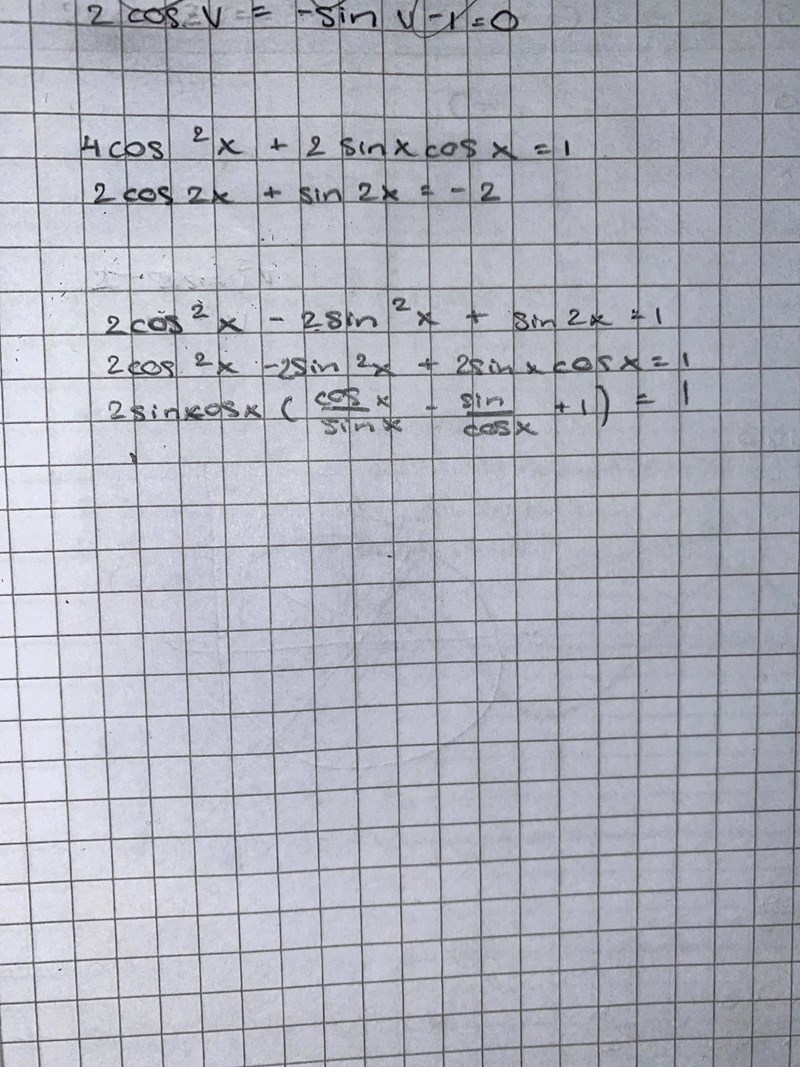 2 cos v = -sin v -1 = 0
4cos ²x + 2 sinx cos x = 1
2 cos 2x + sin 2x = - 2
2cos ²x - 2sin ²x + sin 2x = 1
2cos ²x -2sin ²x + 2sin x cosx = 1
2sinxcosx ( cos x / sin x - sin / cosx + 1 ) = 1